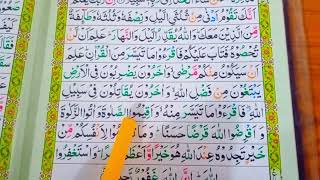 اَنَّكَ تَقُوْمُ اَدْنٰى مِنْ ثُلُثَىِ الَّيْلِ وَ نِصْفَهٗ وَ ثُلُثَهٗ وَ طَآئِفَةٌ
مِّنَ الَّذِيْنَ مَعَكَ ؕ وَ اللّٰهُ يُقَدِّرُ الَّيْلَ وَ النَّهَارَ ؕ عَلِمَ اَنْ لَّنْ
تُحْصُوْهُ فَتَابَ عَلَيْكُمْ فَاقْرَءُوْا مَا تَيَسَّرَ مِنَ الْقُرْاٰنِ ؕ عَلِمَ
اَنْ سَيَكُوْنُ مِنْكُمْ مَّرْضٰى ۙ وَ اٰخَرُوْنَ يَضْرِبُوْنَ فِى الْاَرْضِ
يَبْتَغُوْنَ مِنْ فَضْلِ اللّٰهِ ۙ وَ اٰخَرُوْنَ يُقَاتِلُوْنَ فِىْ سَبِيْلِ
اللّٰهِ ۖ فَاقْرَءُوْا مَا تَيَسَّرَ مِنْهُ ۙ وَ اَقِيْمُوا الصَّلٰوةَ وَ اٰتُوا الزَّكٰوةَ
وَ اَقْرِضُوا اللّٰهَ قَرْضًا حَسَنًا ؕ وَ مَا تُقَدِّمُوْا لِاَنْفُسِكُمْ مِّنْ
خَيْرٍ تَجِدُوْهُ عِنْدَ اللّٰهِ هُوَ خَيْرًا وَّ اَعْظَمَ اَجْرًا ؕ وَ اسْتَغْفِرُوا
اللّٰهَ ؕ اِنَّ اللّٰهَ غَفُوْرٌ